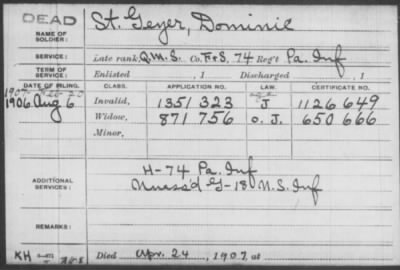 DEAD
NAME OF SOLDIER: St. Geyer, Dominic
SERVICE: Late rank, Q.M.S. Co. F+S, 74 Reg't Pa. Inf
TERM OF SERVICE: Enlisted , 1 Discharged , 1
DATE OF FILING. CLASS. APPLICATION NO. LAW. CERTIFICATE NO.
1906 Aug 6 Invalid, 1351 323 J 1126 649
Widow, 871 756 O. J. 650 666
Minor,
ADDITIONAL SERVICES: H-74 Pa. Inf
G-18 U.S. Inf
REMARKS:
KH
Died Apr. 24, 1907, at